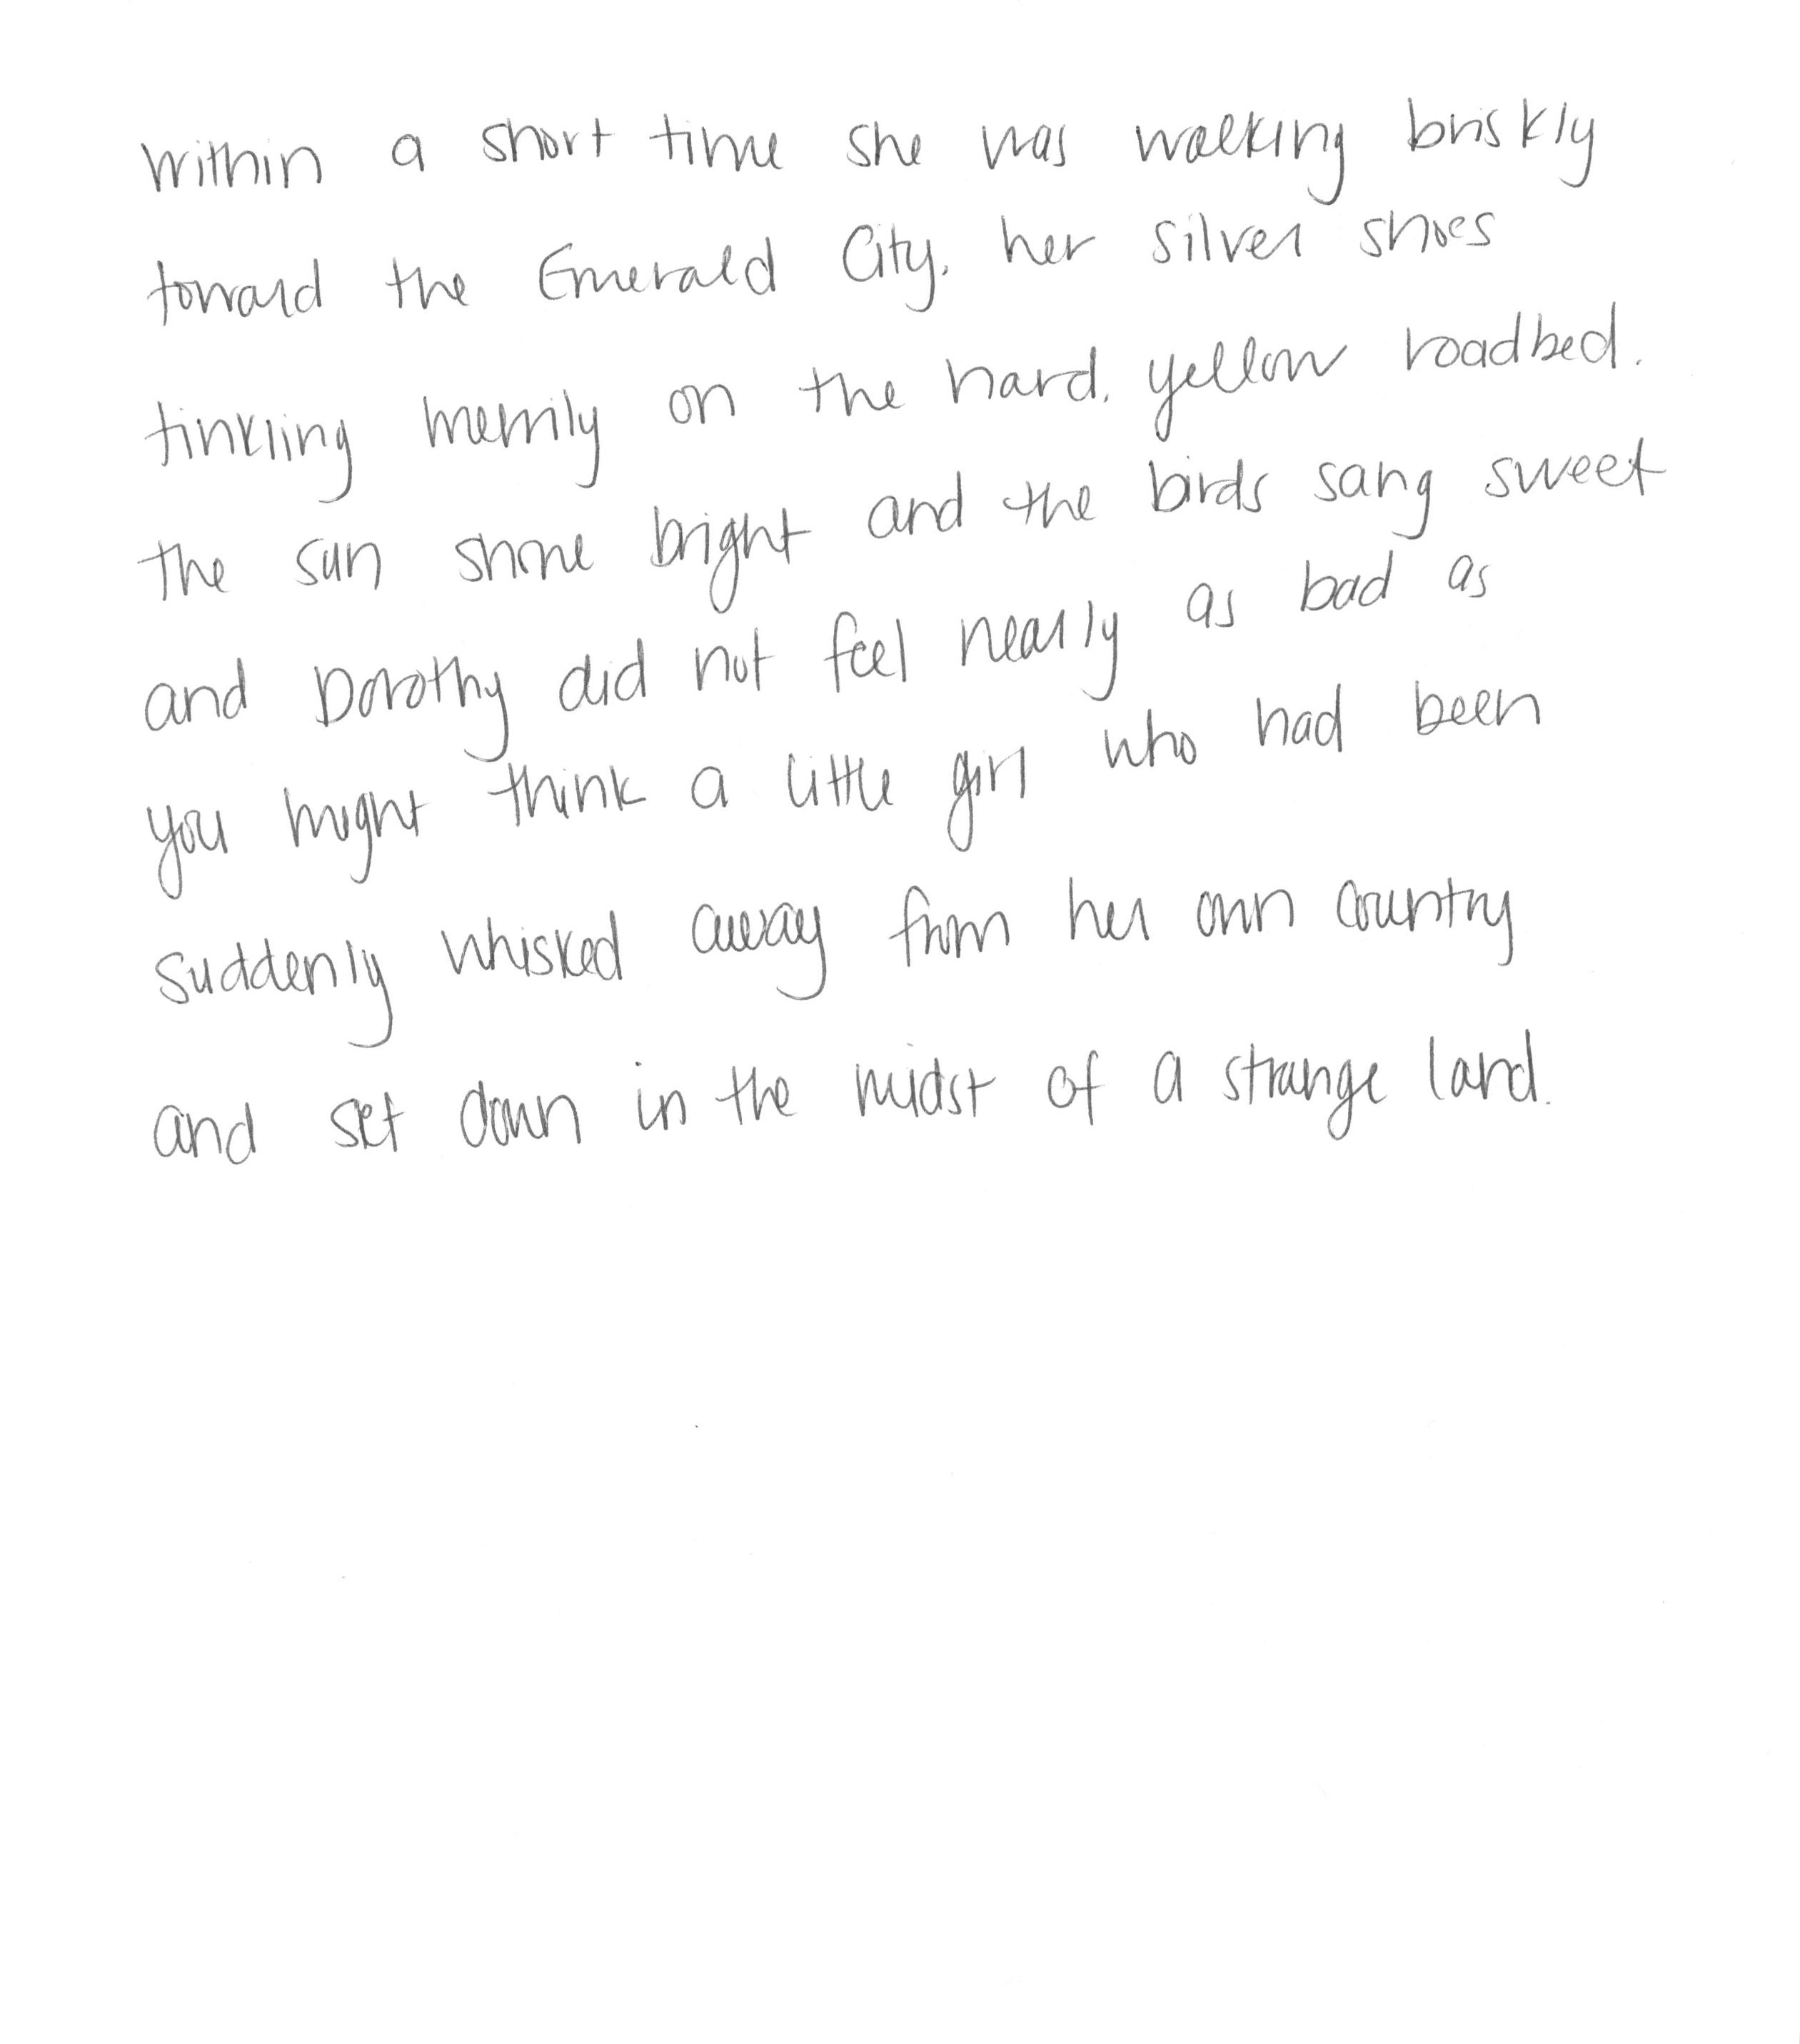 Within a short time she was walking briskly
toward the Emerald City, her silver shoes
tinkling merrily on the hard, yellow roadbed.
The sun shone bright and the birds sang sweet
and Dorothy did not feel nearly as bad as
you might think a little girl who had been
suddenly whisked away from her own country
and set down in the midst of a strange land.